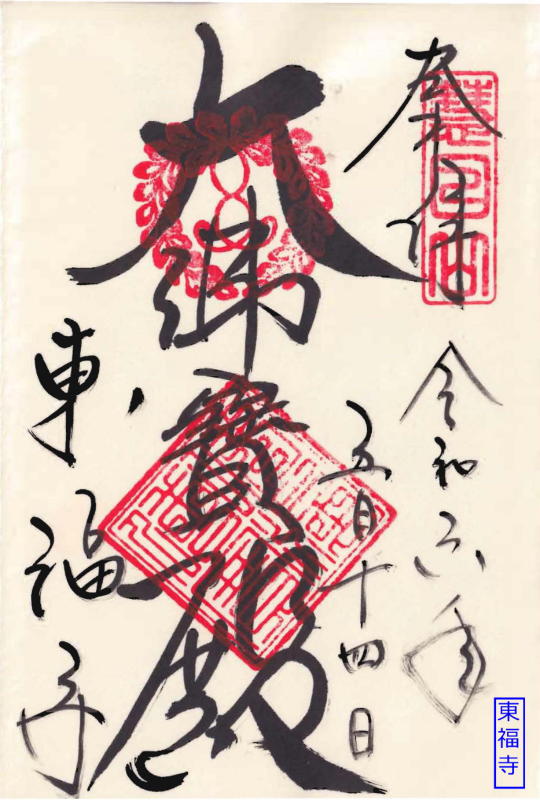 奉拝
慧日山
令和六年
五月十四日
大佛寶殿
東福寺
東福寺